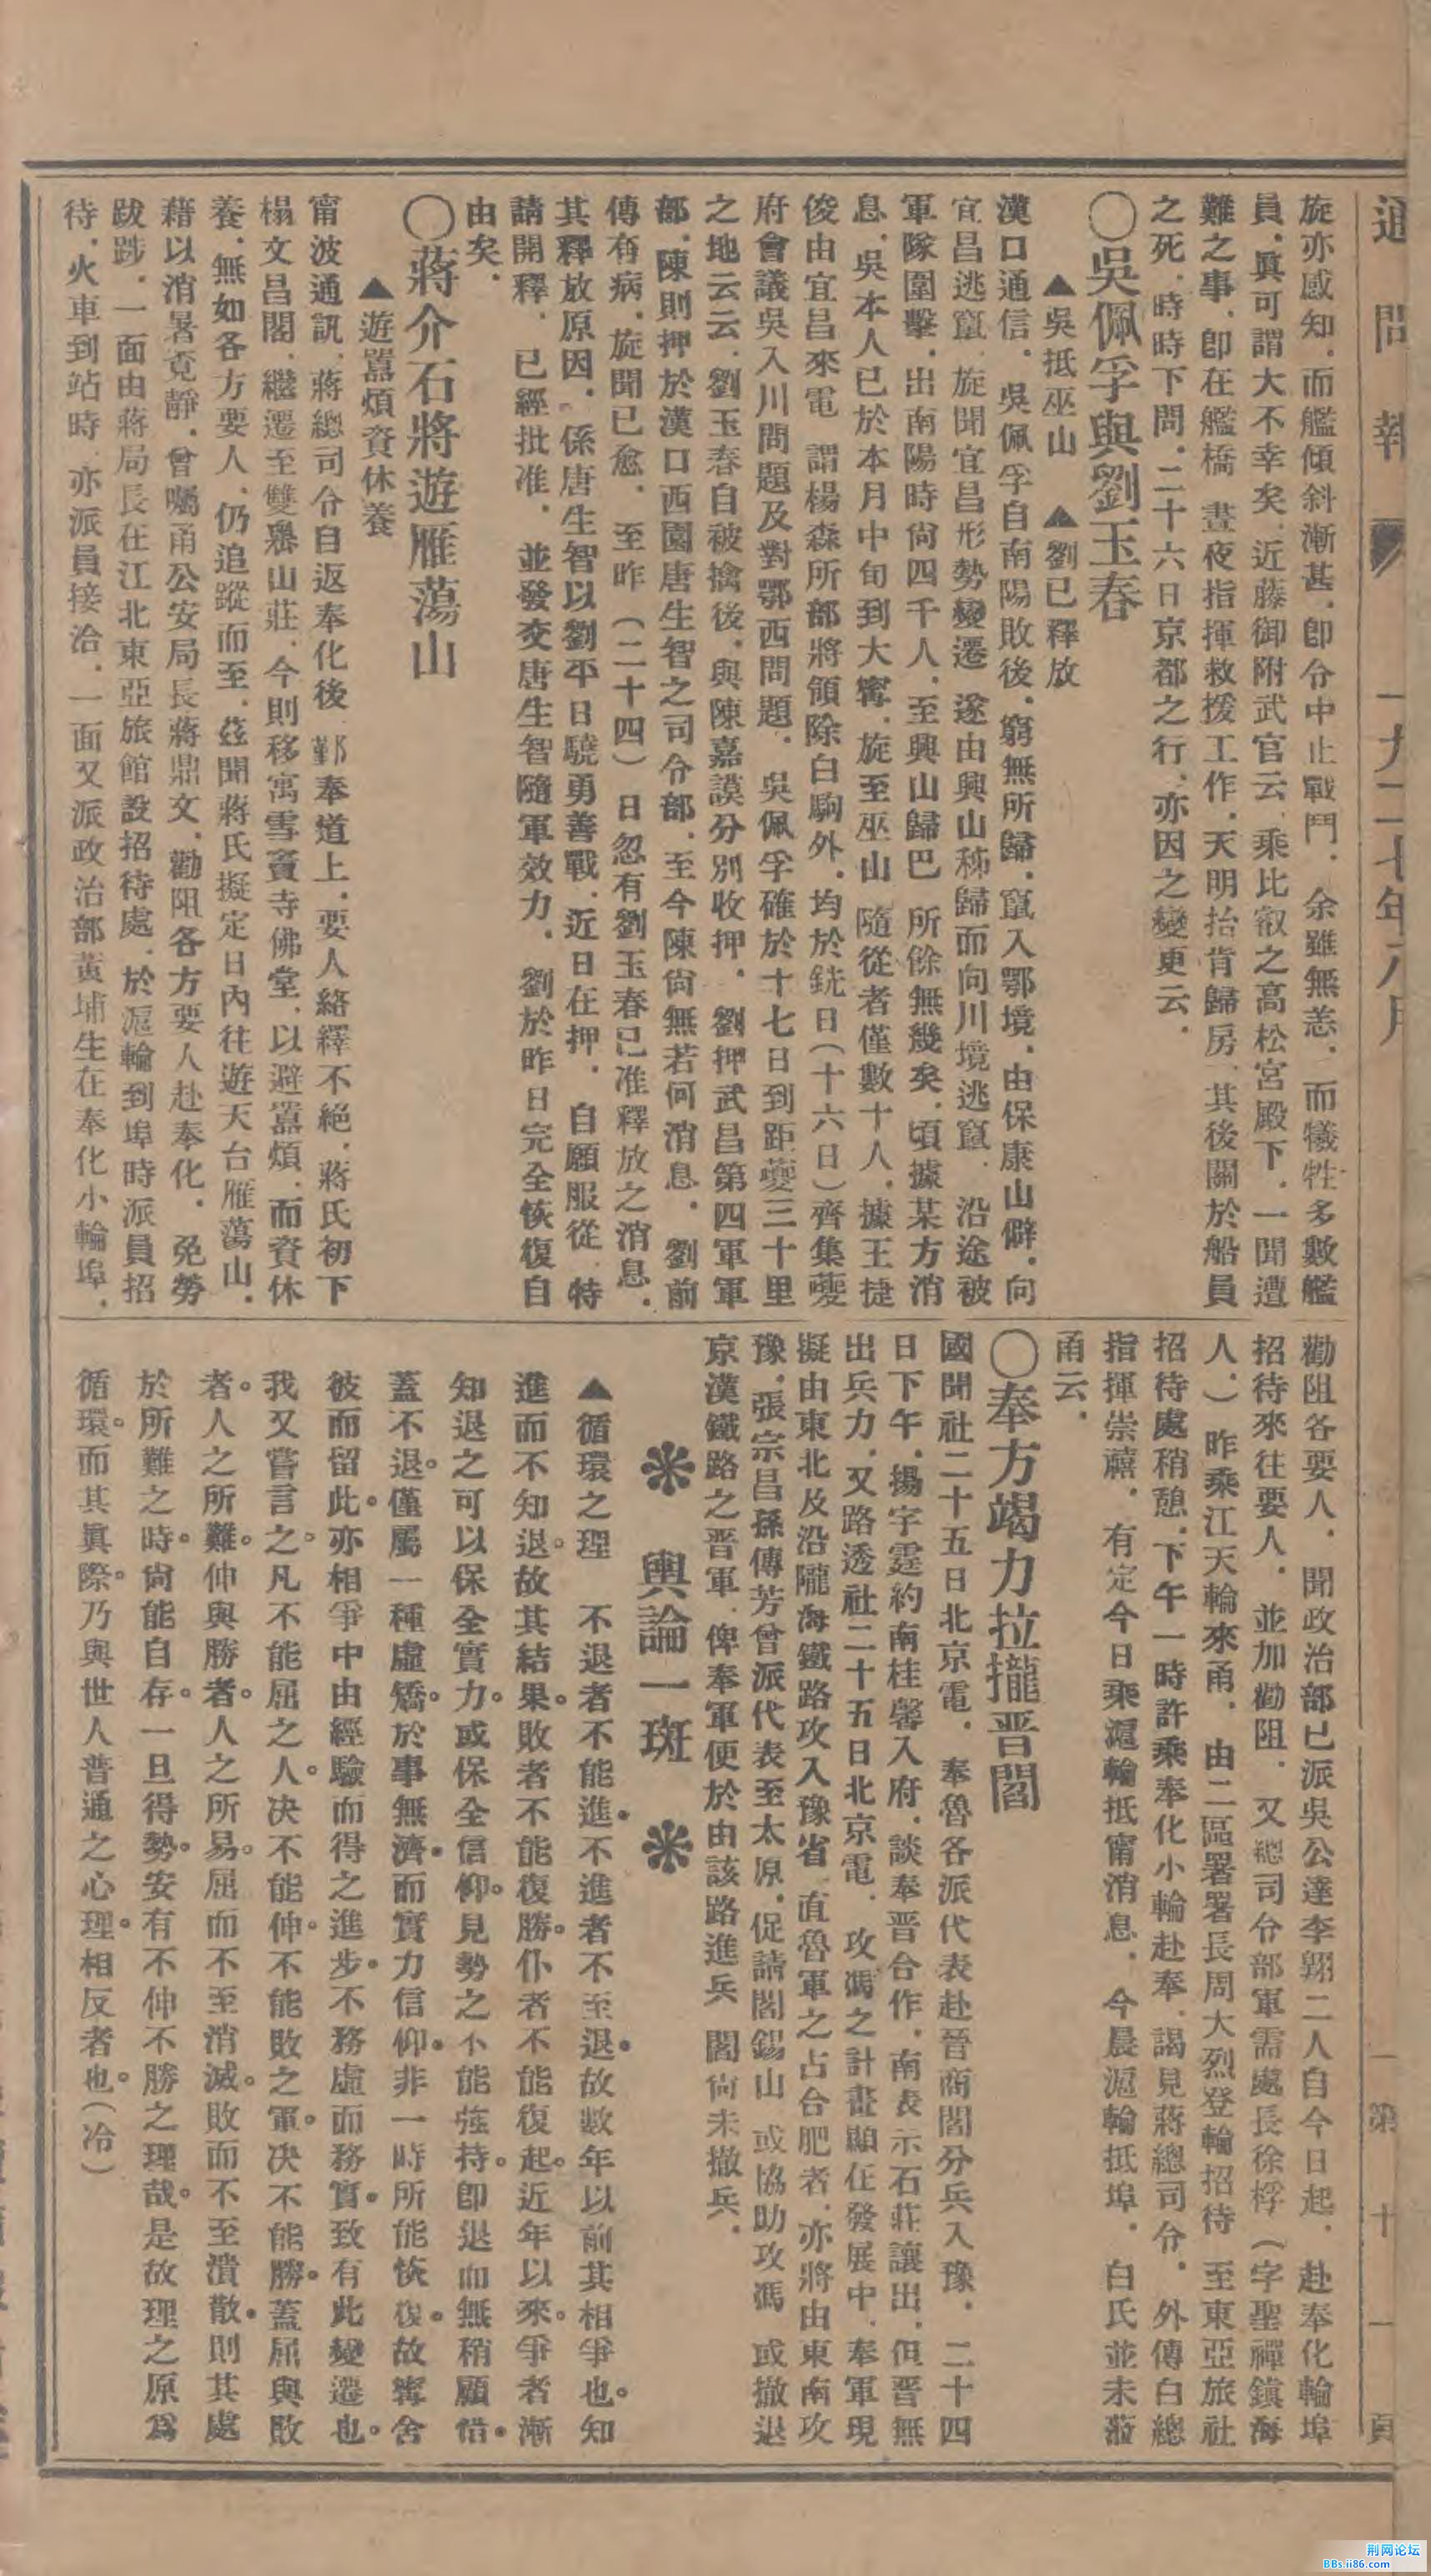 通問報
一九二七年八月
第十一頁
旋亦感知．而艦傾斜漸甚．卽令中止戰鬥．余雖無恙．而犧牲多數艦
員．眞可謂大不幸矣．近藤御附武官云．乘比叡之高松宮殿下．一聞遭
難之事．卽在艦橋　晝夜指揮救援工作．天明抬肯歸房．其後關於船員
之死．時時下問．二十六日京都之行．亦因之變更云．
〇吳佩孚與劉玉春
▲吳抵巫山　▲劉已釋放
漢口通信．吳佩孚自南陽敗後．窮無所歸．竄入鄂境．由保康山僻．向
宜昌逃竄．旋聞宜昌形勢變遷　遂由興山秭歸而向川境逃竄．沿途被
軍隊圍擊．出南陽時尙四千人．至興山歸巴　所餘無幾矣．頃據某方消
息．吳本人已於本月中旬到大寗．旋至巫山　隨從者僅數十人．據王捷
俊由宜昌來電　謂楊森所部將領除白駒外．均於銑日（十六日）齊集夔
府會議吳入川問題及對鄂西問題．吳佩孚確於十七日到距夔三十里
之地云云．劉玉春自被擒後．與陳嘉謨分別收押．劉押武昌第四軍軍
部．陳則押於漢口西園唐生智之司令部．至今陳尙無若何消息．劉前
傳有病．旋聞已愈．至昨（二十四）日忽有劉玉春已准釋放之消息．
其釋放原因．係唐生智以劉平日驍勇善戰．近日在押．自願服從．特
請開釋．已經批准．並發交唐生智隨軍效力．劉於昨日完全恢復自
由矣．
〇蔣介石將遊雁蕩山
▲遊囂煩資休養
甯波通訊．蔣總司令自返奉化後．鄞奉道上．要人絡繹不絕．蔣氏初下
榻文昌閣．繼遷至雙㟢山莊．今則移寓雪竇寺佛堂．以避囂煩．而資休
養．無如各方要人．仍追蹤而至．茲聞蔣氏擬定日內往遊天台雁蕩山．
藉以消暑覔靜．曾囑甬公安局長蔣鼎文．勸阻各方要人赴奉化．免勞
跋踄．一面由蔣局長在江北東亞旅館設招待處．於滬輪到埠時派員招
待．火車到站時．亦派員接洽．一面又派政治部黃埔生在奉化小輪埠．
勸阻各要人．聞政治部已派吳公達李翔二人自今日起．赴奉化輪埠
招待來往要人．並加勸阻．又總司令部軍需處長徐桴（字聖禪鎮海
人．）昨乘江天輪來甬．由二區署署長周大烈登輪招待　至東亞旅社
招待處稍憩．下午一時許乘奉化小輪赴奉．謁見蔣總司令．外傳白總
指揮崇禧．有定今日乘滬輪抵甯消息．今晨滬輪抵埠．白氏並未蒞
甬云．
〇奉方竭力拉攏晋閻
國聞社二十五日北京電．奉魯各派代表赴晉商閻分兵入豫．二十四
日下午．揚宇霆約南桂馨入府．談奉晋合作．南表示石莊讓出．但晋無
出兵力．又路透社二十五日北京電．攻馮之計畫顯在發展中．奉軍現
擬由東北及沿隴海鐵路攻入豫省．直魯軍之占合肥者．亦將由東南攻
豫．張宗昌孫傳芳曾派代表至太原．促請閻錫山　或協助攻馮　或撤退
京漢鐵路之晋軍．俾奉軍便於由該路進兵　閻尙未撤兵．
輿論一斑
▲循環之理　不退者不能進。不進者不至退。故數年以前其相爭也。知
進而不知退。故其結果。敗者不能復勝。仆者不能復起。近年以來。爭者漸
知退之可以保全實力。或保全信仰。見勢之不能强持。卽退而無稍顧惜。
蓋不退。僅屬一種虛矯。於事無濟。而實力信仰。非一時所能恢復。故寗舍
彼而留此。亦相爭中由經驗而得之進步。不務虛而務實。致有此變遷也。
我又嘗言之。凡不能屈之人。决不能伸。不能敗之軍。决不能勝。蓋屈與敗
者。人之所難。伸與勝者。人之所易。屈而不至消滅。敗而不至潰散。則其處
於所難之時。尙能自存。一旦得勢。安有不伸不勝之理哉。是故理之原爲
循環。而其眞際。乃與世人普通之心理。相反者也。（冷）
荆网论坛
BBs.ii86.com